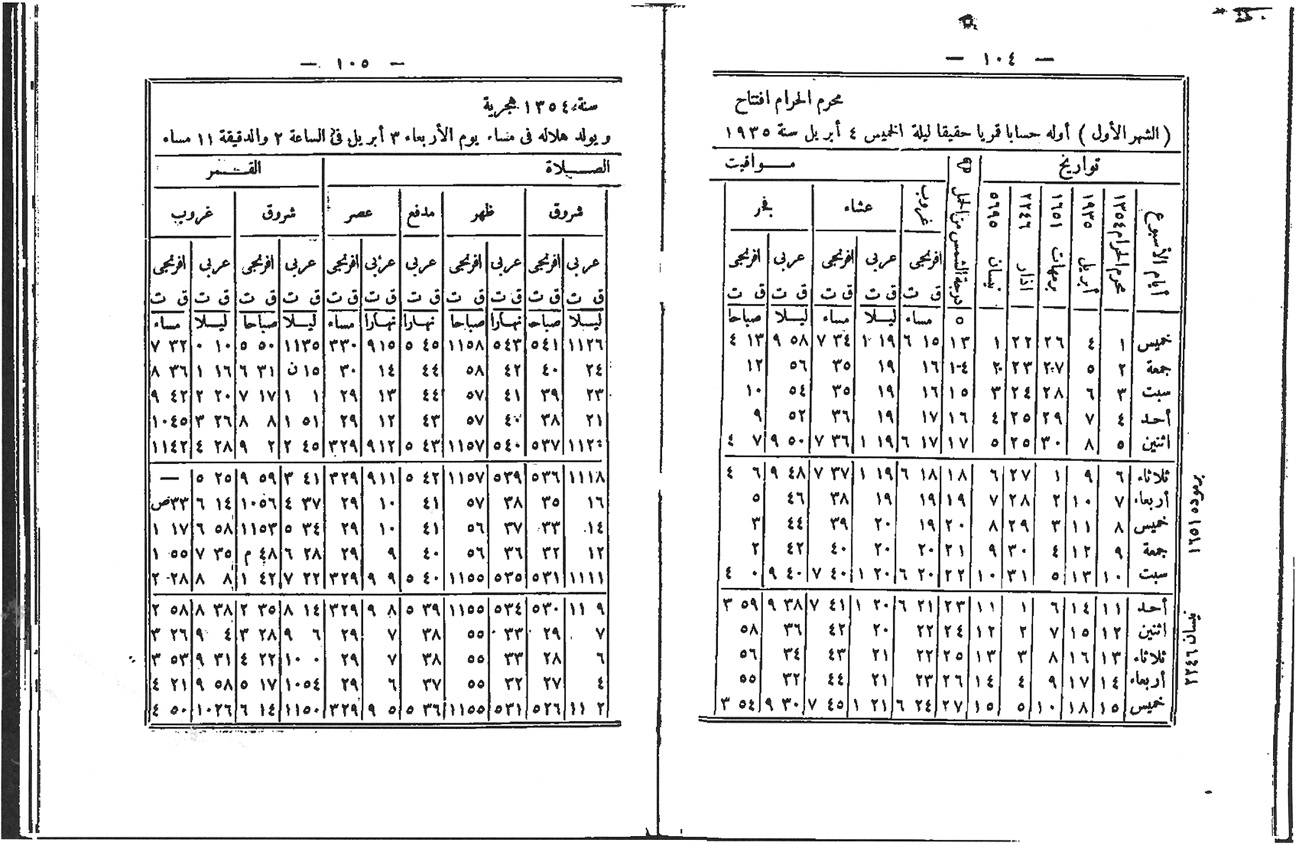 — ١٠٤ —
محرم الحرام افتتاح
(الشهر الأول) أوله حسابا قمريا حقيقا ليلة الخميس ٤ أبريل سنة ١٩٣٥
تواريخ مواقيت
أيام الأسبوع محرم الحرام ١٣٥٤ أبريل ١٩٣٥ برمهات ١٦٥١ اذار ٢٢٤٦ نيسان ٥٦٩٥ درجة الشمس من الحمل غروب عشاء فجر
افرنجى عربى افرنجى عربى افرنجى
ق ت ق ت ق ت ق ت ق ت
مساء ليلا مساء ليلا صباحا
خميس ١ ٤ ٢٦ ٢٢ ١ ١٣ ١٥ ٦ ١٩ ١ ٣٤ ٧ ٥٨ ٩ ١٣ ٤
جمعة ٢ ٥ ٢٧ ٢٣ ٢ ١٤ ١٦ ١٩ ٣٥ ٥٦ ١٢
سبت ٣ ٦ ٢٨ ٢٤ ٣ ١٥ ١٦ ١٩ ٣٥ ٥٤ ١٠
أحد ٤ ٧ ٢٩ ٢٥ ٤ ١٦ ١٧ ١٩ ٣٦ ٥٢ ٩
اثنين ٥ ٨ ٣٠ ٢٥ ٥ ١٧ ١٧ ٦ ١٩ ١ ٣٦ ٧ ٥٠ ٩ ٧ ٤
ثلاثاء ٦ ٩ ١ ٢٧ ٦ ١٨ ١٨ ٦ ١٩ ١ ٣٧ ٧ ٤٨ ٩ ٦ ٤
أربعاء ٧ ١٠ ٢ ٢٨ ٧ ١٩ ١٩ ١٩ ٣٨ ٤٦ ٥
خميس ٨ ١١ ٣ ٢٩ ٨ ٢٠ ١٩ ٢٠ ٣٩ ٤٤ ٣
جمعة ٩ ١٢ ٤ ٣٠ ٩ ٢١ ٢٠ ٢٠ ٤٠ ٤٢ ٢
سبت ١٠ ١٣ ٥ ٣١ ١٠ ٢٢ ٢٠ ٦ ٢٠ ١ ٤٠ ٧ ٤٠ ٩ ٠ ٤
أحد ١١ ١٤ ٦ ١ ١١ ٢٣ ٢١ ٦ ٢٠ ١ ٤١ ٧ ٣٨ ٩ ٥٩ ٣
اثنين ١٢ ١٥ ٧ ٢ ١٢ ٢٤ ٢٢ ٢٠ ٤٢ ٣٦ ٥٨
ثلاثاء ١٣ ١٦ ٨ ٣ ١٣ ٢٥ ٢٢ ٢١ ٤٣ ٣٤ ٥٦
أربعاء ١٤ ١٧ ٩ ٤ ١٤ ٢٦ ٢٣ ٢١ ٤٤ ٣٢ ٥٥
خميس ١٥ ١٨ ١٠ ٥ ١٥ ٢٧ ٢٤ ٦ ٢١ ١ ٤٥ ٧ ٣٠ ٩ ٥٤ ٣
برموده ١٦٥١
نيسان ٢٢٤٦
— ١٠٥ —
سنة ١٣٥٤ هجرية
ويولد هلاله فى مساء يوم الأربعاء ٣ أبريل فى الساعة ٢ والدقيقة ١١ مساء
الصلاة القمر
شروق ظهر مدفع عصر شروق غروب
عربى افرنجى عربى افرنجى عربى عربى افرنجى عربى افرنجى عربى افرنجى
ق ت ق ت ق ت ق ت ق ت ق ت ق ت ق ت ق ت ق ت ق ت
ليلا صباحا نهارا صباحا نهارا نهارا مساء ليلا صباحا ليلا مساء
١١٢٦ ٥٤١ ٥٤٣ ١١٥٨ ٤٥ ٥ ٩١٥ ٣٣٠ ١١٣٥ ٥٠ ٥ ١٠ ٠ ٣٢ ٧
٢٤ ٤٠ ٤٢ ٥٨ ٤٤ ١٤ ٣٠ ١٥ ن ٣١ ٦ ١٦ ١ ٣٦ ٨
٢٣ ٣٩ ٤١ ٥٧ ٤٤ ١٣ ٢٩ ١ ١ ١٧ ٧ ٢٠ ٢ ٤٢ ٩
٢١ ٣٨ ٤٠ ٥٧ ٤٣ ١٢ ٢٩ ٥١ ١ ٨ ٨ ٢٦ ٣ ١٠٤٥
١١٢٠ ٥٣٧ ٥٤٠ ١١٥٧ ٤٣ ٥ ٩١٢ ٣٢٩ ٤٥ ٢ ٢ ٩ ٢٨ ٤ ١١٤٢
١١١٨ ٥٣٦ ٥٣٩ ١١٥٧ ٤٢ ٥ ٩١١ ٣٢٩ ٤١ ٣ ٥٩ ٩ ٢٥ ٥ —
١٦ ٣٥ ٣٨ ٥٧ ٤١ ١٠ ٢٩ ٣٧ ٤ ١٠٥٦ ١٤ ٦ ٣٣ص
١٤ ٣٣ ٣٧ ٥٦ ٤١ ١٠ ٢٩ ٣٤ ٥ ١١٥٣ ٥٨ ٦ ١٧ ١
١٢ ٣٢ ٣٦ ٥٦ ٤٠ ٩ ٢٩ ٢٨ ٦ ٤٨ م ٣٥ ٧ ٥٥ ١
١١١١ ٥٣١ ٥٣٥ ١١٥٥ ٤٠ ٥ ٩ ٩ ٣٢٩ ٢٢ ٧ ٤٢ ١ ٨ ٨ ٢٨ ٢
٩ ١١ ٥٣٠ ٥٣٤ ١١٥٥ ٣٩ ٥ ٨ ٩ ٣٢٩ ١٤ ٨ ٣٥ ٢ ٣٨ ٨ ٥٨ ٢
٧ ٢٩ ٣٣ ٥٥ ٣٨ ٧ ٢٩ ٦ ٩ ٢٨ ٣ ٤ ٩ ٢٦ ٣
٦ ٢٨ ٣٣ ٥٥ ٣٨ ٧ ٢٩ ٠ ١٠ ٢٢ ٤ ٣١ ٩ ٥٣ ٣
٤ ٢٧ ٣٢ ٥٥ ٣٧ ٦ ٢٩ ١٠٥٤ ١٧ ٥ ٥٨ ٩ ٢١ ٤
٢ ١١ ٥٢٦ ٥٣١ ١١٥٥ ٣٦ ٥ ٥ ٩ ٣٢٩ ١١٥٠ ١٤ ٦ ١٠٢٦ ٥٠ ٤